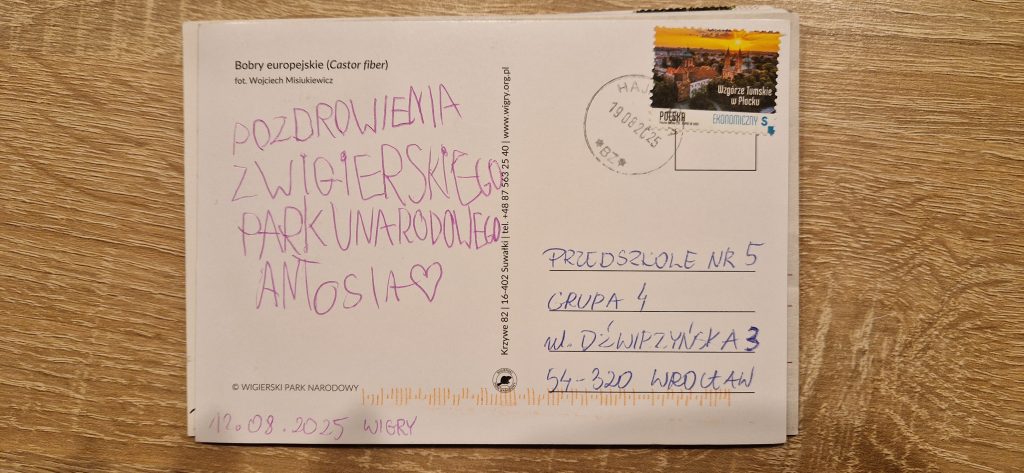 Bobry europejskie (Castor fiber)
fot. Wojciech Misiukiewicz
POZDROWIENIA
Z WIGIERSKIEGO
PARKU NARODOWEGO
ANTOSIA♡
© WIGIERSKI PARK NARODOWY
12.08.2025 WIGRY
Krzywe 82 | 16-402 Suwałki | tel. +48 87 563 25 40 | www.wigry.org.pl
HAJ
19 08 2025
*BZ*
Wzgórze Tumskie
w Płocku
POLSKA
EKONOMICZNY S
PRZEDSZKOLE NR 5
GRUPA 4
ul. DŹWIRZYŃSKA 3
54-320 WROCŁAW